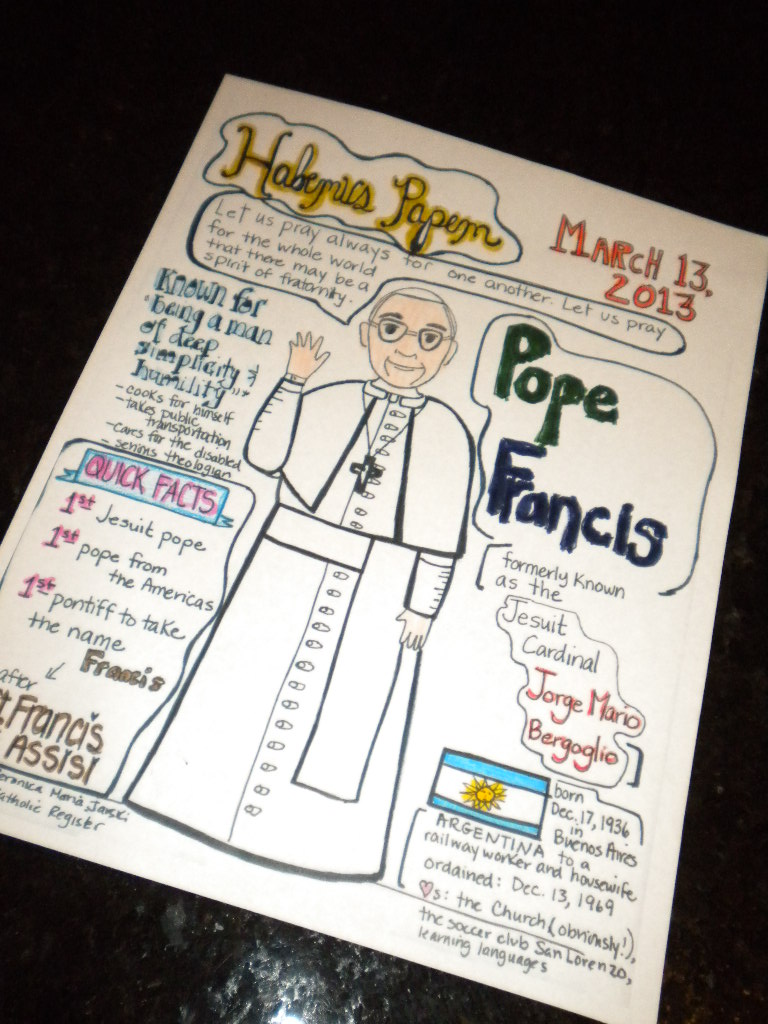 Habemus Papem
MARCH 13,
2013
Let us pray always for one another. Let us pray
for the whole world
that there may be a
spirit of fraternity.
Known for
"being a man
of deep
simplicity &
humility"
- cooks for himself
- takes public
transportation
- cares for the disabled
- serious theologian
QUICK FACTS
1st Jesuit pope
1st pope from
the Americas
1st pontiff to take
the name
Francis
after
t. Francis
Assisi
Veronica Maria Jarski
Catholic Register
Pope
Francis
[formerly known
as the
Jesuit
Cardinal
Jorge Mario
Bergoglio]
born
Dec. 17, 1936
in
Buenos Aires
ARGENTINA to a
railway worker and housewife
ordained: Dec. 13, 1969
♡s: the Church (obviously!),
the soccer club San Lorenzo,
learning languages